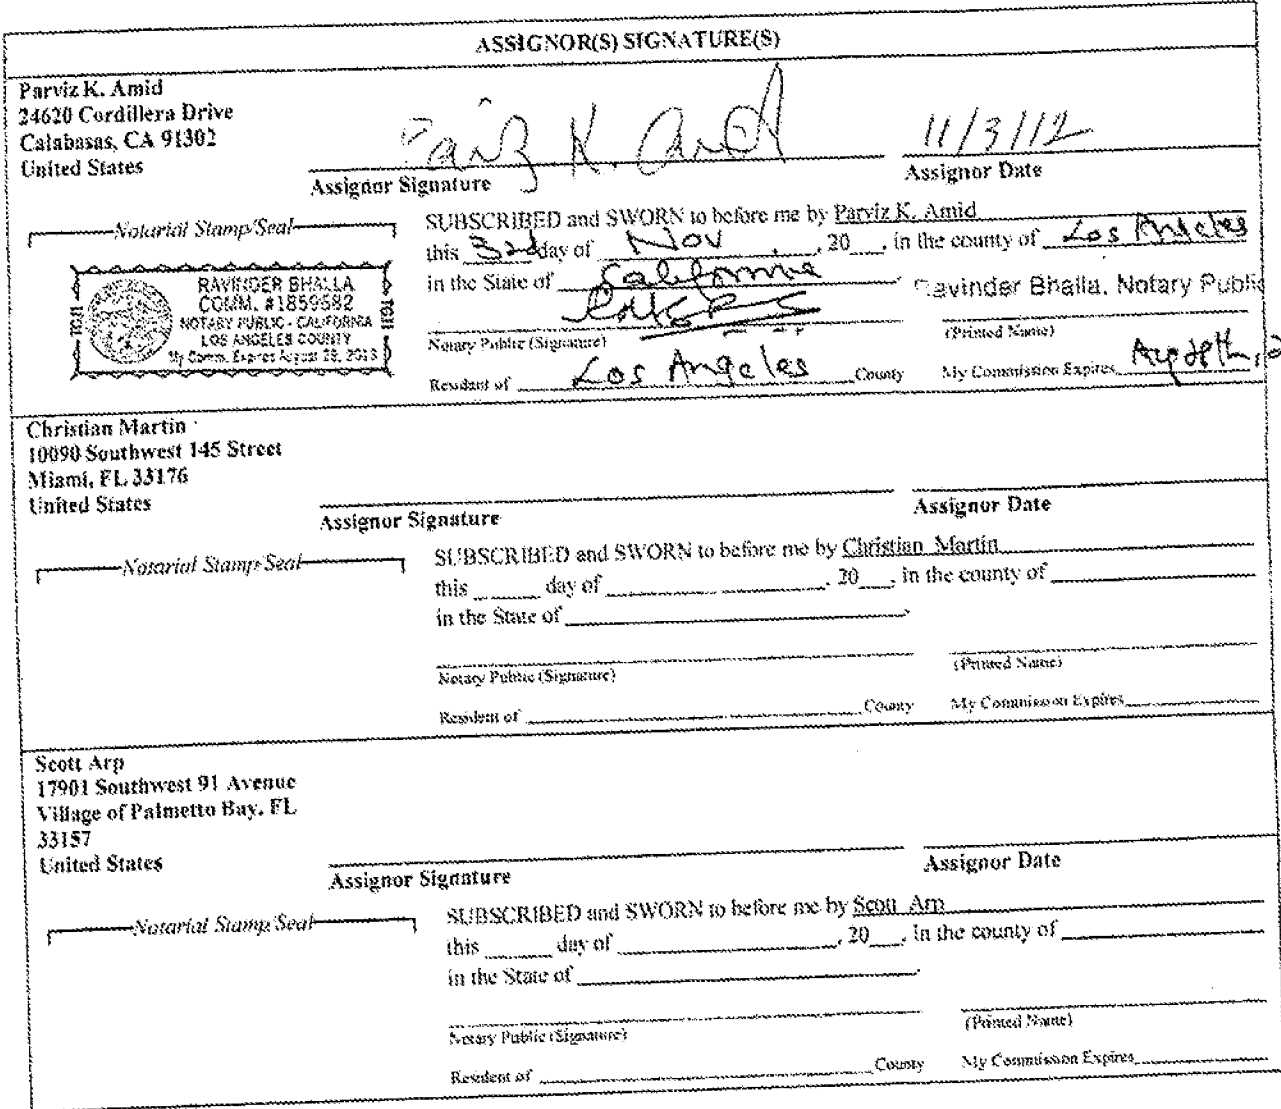 ASSIGNOR(S) SIGNATURE(S)
Parviz K. Amid
24620 Cordillera Drive
Calabasas, CA 91302
United States
Parviz K. Amid
11/3/12
Assignor Signature
Assignor Date
Notarial Stamp/Seal
RAVINDER BHALLA
COMM. #1859582
NOTARY PUBLIC - CALIFORNIA
LOS ANGELES COUNTY
My Comm. Expires August 28, 2013
SUBSCRIBED and SWORN to before me by Parviz K. Amid
this 3rd day of Nov, 20___, in the county of Los Angeles
in the State of California
Ravinder Bhalla, Notary Public
Notary Public (Signature)
(Printed Name)
Resident of Los Angeles County
My Commission Expires
Christian Martin
10090 Southwest 145 Street
Miami, FL 33176
United States
Assignor Signature
Assignor Date
Notarial Stamp/Seal
SUBSCRIBED and SWORN to before me by Christian Martin
this ______ day of ____________________, 20___, in the county of ____________________
in the State of ____________________.
Notary Public (Signature)
(Printed Name)
Resident of ____________________ County
My Commission Expires__________
Scott Arp
17901 Southwest 91 Avenue
Village of Palmetto Bay, FL
33157
United States
Assignor Signature
Assignor Date
Notarial Stamp/Seal
SUBSCRIBED and SWORN to before me by Scott Arp
this ______ day of ____________________, 20___, in the county of ____________________
in the State of ____________________.
Notary Public (Signature)
(Printed Name)
Resident of ____________________ County
My Commission Expires__________